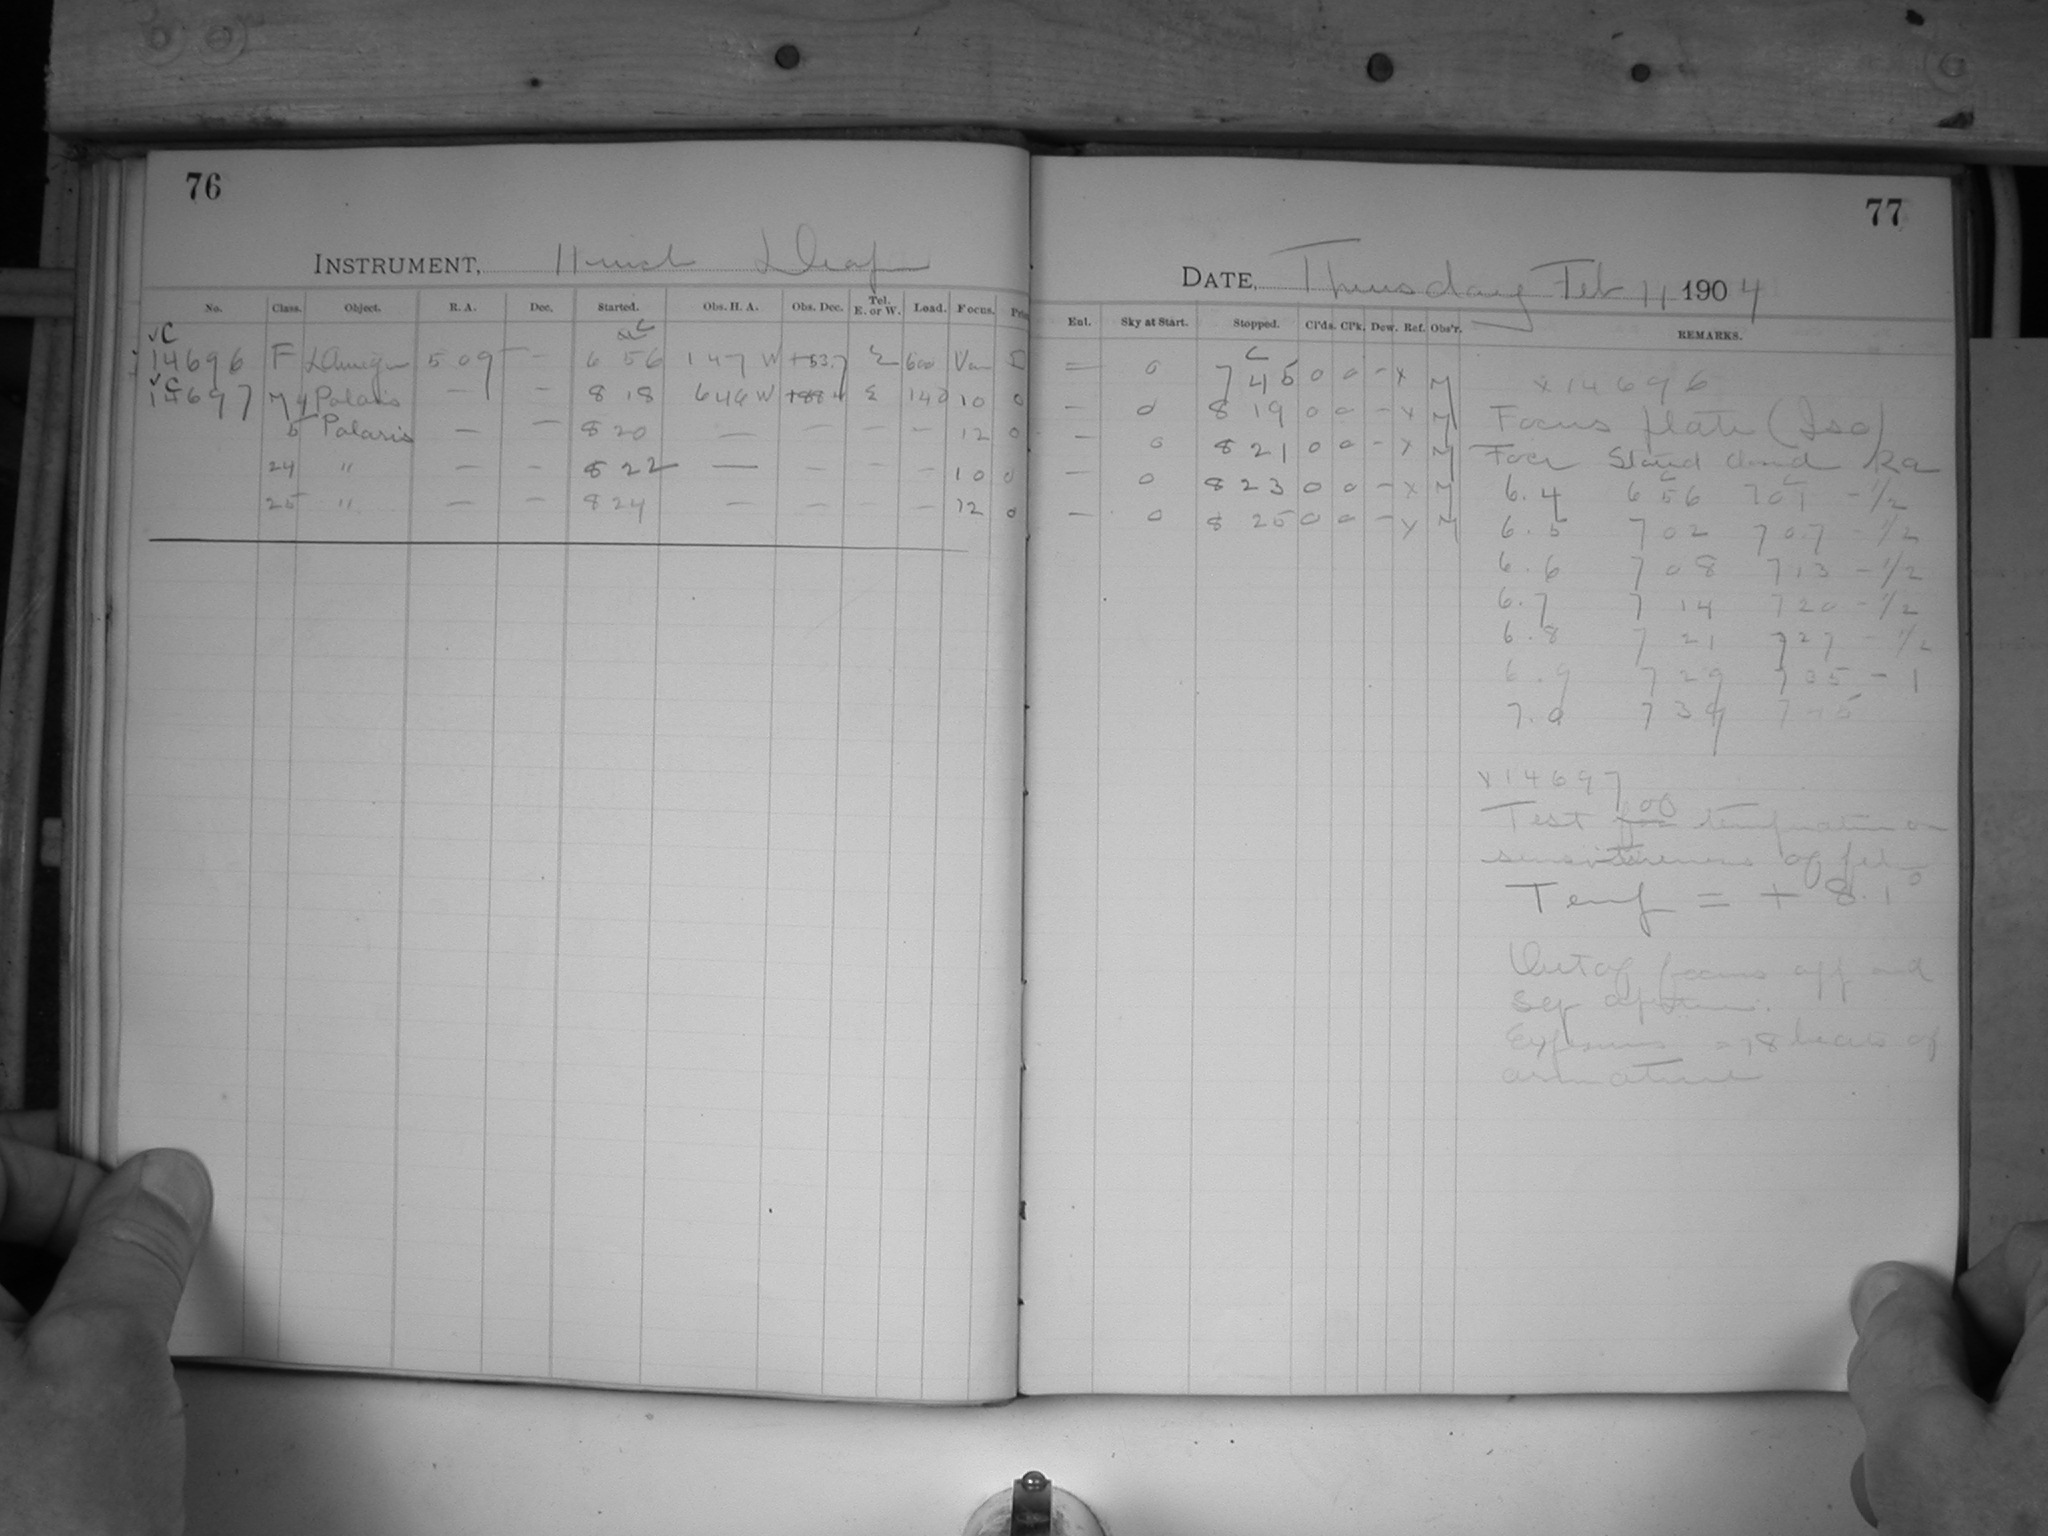 76
INSTRUMENT, 11 inch Draper
No. Class. Object. R. A. Dec. Started. Obs. H. A. Obs. Dec. Tel. E. or W. Load. Focus.
C C
14696 F 5 09 — 6 56 1 47 W +53.7 E 600 Var
C
14697 Polaris — — 8 18 6 46 W E 140 10 0
5 Polaris — — 8 20 — — — — 12 0
24 " — — 8 22 — — — — 10 0
25 " — — 8 24 — — — — 12 0
77
DATE, Thursday Feb 11 1904
Enl. Sky at Start. Stopped. Cl'ds. Cl'k. Dew. Ref. Obs'r. REMARKS.
— 0 7 45 0 0 – x M
— 0 8 19 0 0 – x M
— 0 8 21 0 0 – x M
— 0 8 23 0 0 – x M
— 0 8 25 0 0 – x M
x 14696
Focus plate (Iso)
6.4 6 56 7 01 – 1/2
6.5 7 02 7 07 – 1/2
6.6 7 08 7 13 – 1/2
6.7 7 14 7 20 – 1/2
6.8 7 21 7 27 – 1/2
6.9 7 29 7 35 – 1
7.0 7 39 7 45
x 14697
Test temperature on
sensitiveness of
Temp = + 8.1°
Out of focus
Exposures = 18 beats of
armature